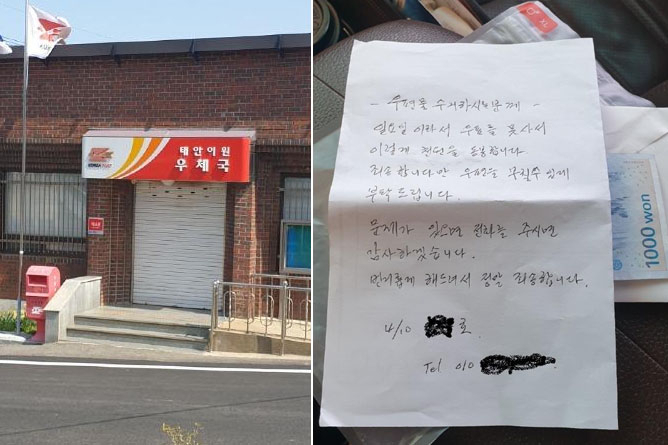 태안이원
우체국
KOREA POST
- 우편물 수거하시는분께 -
일요일 이라서 우표를 못사서
이렇게 천원을 동봉합니다.
죄송합니다만 우편을 부칠수 있게
부탁드립니다.
문제가 있으면 전화를 주시면
감사하겠습니다.
번거롭게 해드려서 정말 죄송합니다.
4/10
Tel 010
1000 won